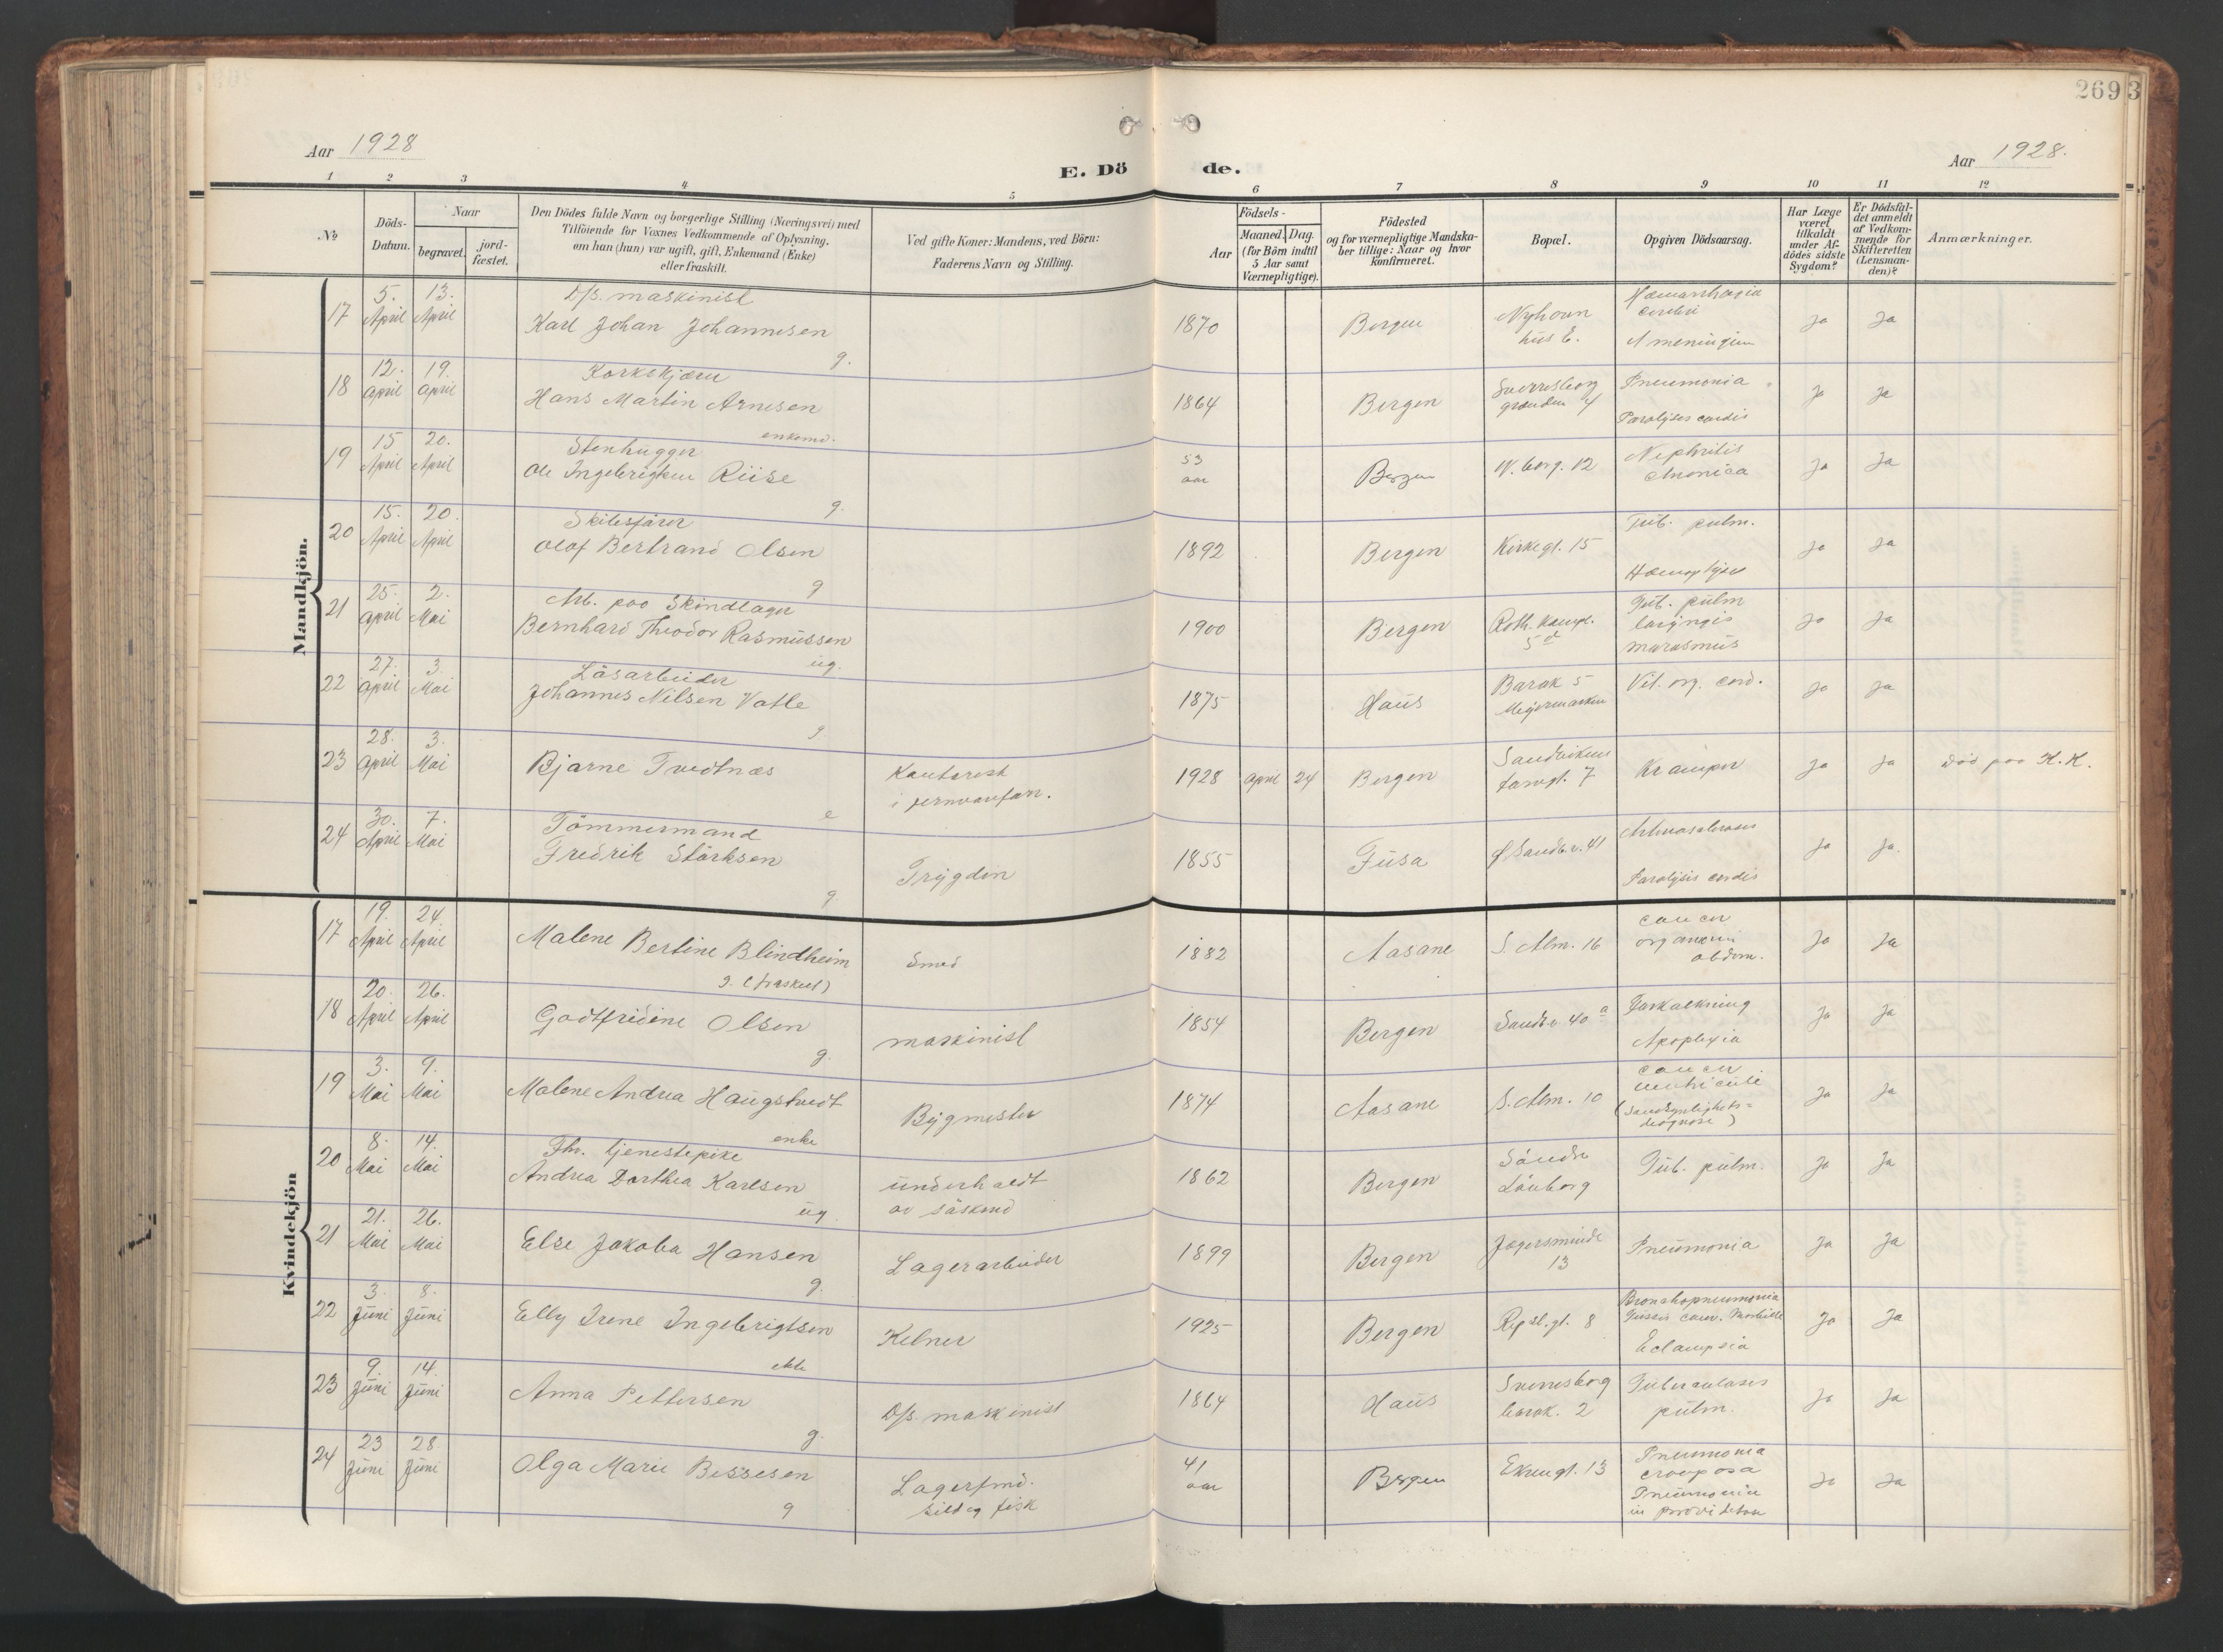 269
3
Aar 1928
Aar 1928.
E. Dö de.
1 2 3 4 5 6 7 8 9 10 11 12
№
Döds-
Datum.
Naar
begravet.
jord-
fæstet.
Den Dödes fulde Navn og borgerlige Stilling (Næringsvei) med
Tilföiende for Voxnes Vedkommende af Oplysning.
om han (hun) var ugift, gift, Enkemand (Enke)
eller fraskilt.
Ved gifte Koner: Mandens, ved Börn:
Faderens Navn og Stilling.
Födsels-
Aar
Maaned. Dag.
(for Börn indtil
5 Aar samt
Værnepligtige).
Födested
og for værnepligtige Mandska-
ber tillige: Naar og hvor
konfirmeret.
Bopæl.
Opgiven Dödsaarsag.
Har Læge
været
tilkaldt
under Af-
dödes sidste
Sygdom?
Er Dödsfal-
det anmeldt
af Vedkom-
mende for
Skifteretten
(Lensman-
den)?
Anmærkninger.
Mandkjön.
17 5. April 13. April
D/s. maskinist
Karl Johan Johannesen g.
1870 Bergen
hus E.
cerebri
Ja Ja
18 12. April 19. April
Hans Martin Arnesen
enkemd.
1864 Bergen
Sverresborg
4
Pneumonia
Paralyses cordis
Ja Ja
19 15 April 20. April
Stenhugger
Ole Riise g.
53 aar
Bergen
12
Nephritis
chronica
Ja Ja
20 15. April 20. April
Olaf Bertrand Olsen g
1892 Bergen Kirkegt. 15
Tub. pulm.
Ja Ja
21 25. April 2. Mai
Arb. paa Skindlager
Bernhard Theodor Rasmussen ug.
1900 Bergen
5 d
Tub. pulm
laryngis
marasmus
Ja Ja
22 27. April 3. Mai
Läsarbeider
Johannes Nilsen Vatle g.
1875 Haus
Barak 5
Vit. org. cord.
Ja Ja
23 28. April 3. Mai
Bjarne Tvedtnæs e
Kontorist
1928 April 24 Bergen
Sandvikens
torvgt. 7
Kramper
Ja Ja
Död paa K.K.
24 30. April 7. Mai
Tömmermand
Fredrik Störksen g
Trygden
1855 Fusa
41
Paralysis cordis
Ja Ja.
Kvindekjön
17 19. April 24. April
Malene Bertine Blindheim
g. (fraskilt)
Smed
1882 Aasane S. Alm. 16
cancer
abdom.
Ja Ja
18 20. April 26. April
Godtfridine Olsen g.
maskinist
1854 Bergen Sandv. 40 a
Forkalkning
Apoplexia
Ja Ja
19 3. Mai 9. Mai
Malene Andrea Haugstvedt
enke
Bygmester
1874 Aasane S. Alm. 10
cancer
ventriculi
(Sandsynligheds=
diagnose)
Ja Ja
20 8. Mai 14. Mai
Fhv. tjenestepike
Andrea Dorthea Karlsen ug
underholdt
av söskend
1862 Bergen
Söndre
Tub. pulm.
Ja Ja
21 21. Mai 26. Mai
Else Jakoba Hansen g.
Lagerarbeider
1899 Bergen
Jægersminde
13
Pneumonia
Ja Ja
22 3. Juni 8. Juni
Elly Irene Ingebrigtsen
ekte
Kelner
1925 Bergen Repsl.gt. 8
Bronchopneumonia
Eclampsia
Ja Ja
23 9. Juni 14. Juni
Anna Pettersen g.
D/s. maskinist
1864 Haus
Sverresborg
barak. 2
Tuberculoses
pulm.
Ja Ja
24 23 Juni 28 Juni
Olga Marie Bessesen g
Lagerfmd.
sild og fisk
41 aar
Bergen Ekrengt. 13
Pneumonia
crouposa
Pneumonia
Ja Ja